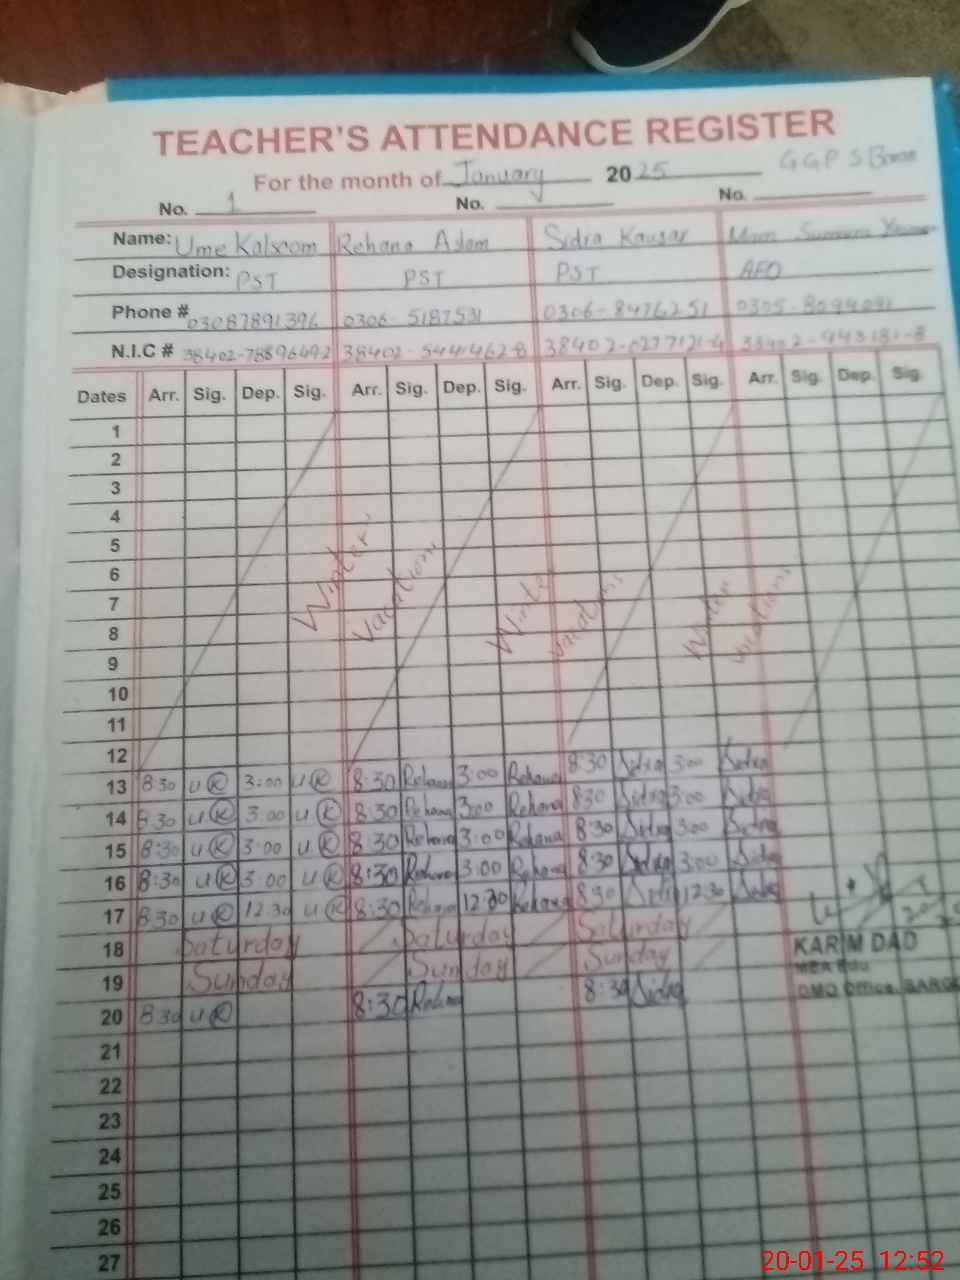 TEACHER'S ATTENDANCE REGISTER
For the month of January 2025 GGPS
No. 1 No. No.
Name: Ume Kalsoom Rehana Adam Sidra Kausar
Designation: PST PST PST AEO
Phone # 03087891396 0306-5187531 0306-8476251 0305-8094091
N.I.C # 38402-78896492 38402-54414628
Dates Arr. Sig. Dep. Sig. Arr. Sig. Dep. Sig. Arr. Sig. Dep. Sig. Arr. Sig. Dep. Sig.
1
2
3
4
5
6
7
8
9
10
11
12
Winter vacation Winter vacations Winter vacations
13 8:30 UK 3:00 UK 8:30 Rehana 3:00 Rehana 8:30 Sidra 3:00 Sidra
14 8:30 UK 3:00 UK 8:30 Rehana 3:00 Rehana 8:30 Sidra 3:00 Sidra
15 8:30 UK 3:00 UK 8:30 Rehana 3:00 Rehana 8:30 Sidra 3:00 Sidra
16 8:30 UK 3:00 UK 8:30 Rehana 3:00 Rehana 8:30 Sidra 3:00 Sidra
17 8:30 UK 12:30 UK 8:30 Rehana 12:30 Rehana 8:30 Sidra 12:30 Sidra
18 Saturday Saturday Saturday KARIM DAD
19 Sunday Sunday Sunday MEA Edu
DMO Office,
20 8:30 UK 8:30 Rehana 8:30 Sidra
21
22
23
24
25
26
27
20-01-25 12:52